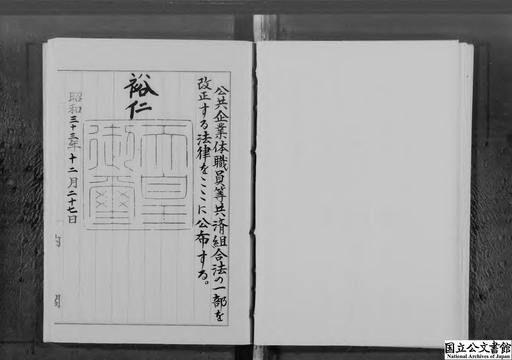 公共企業体職員等共済組合法の一部を
改正する法律をここに公布する。
裕仁
天皇
御璽
昭和三十三年十二月二十七日
国立公文書館
National Archives of Japan